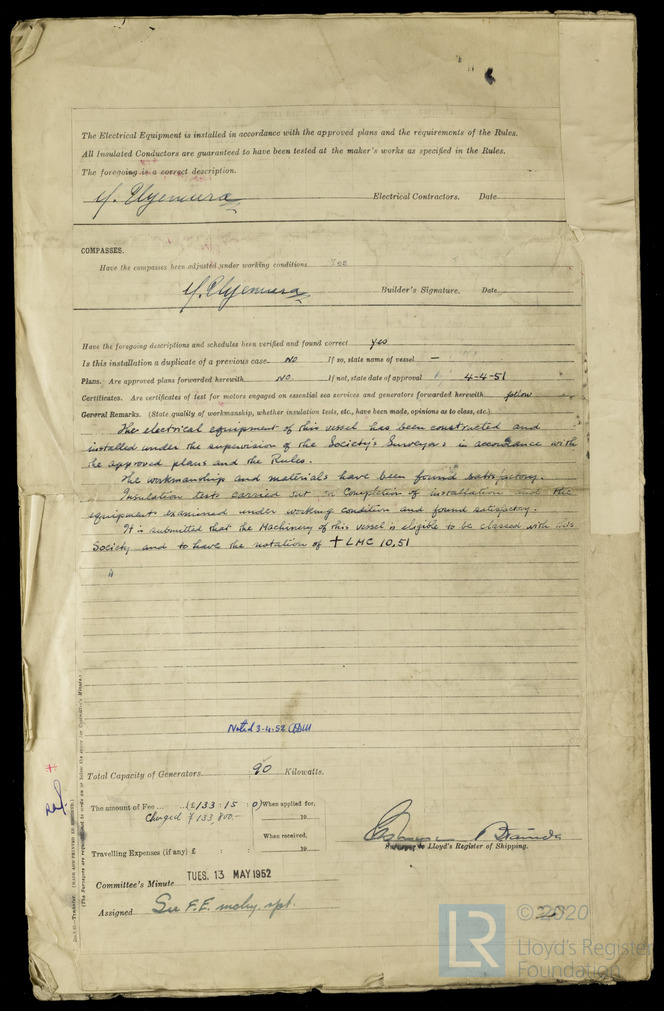 The Electrical Equipment is installed in accordance with the approved plans and the requirements of the Rules.
All Insulated Conductors are guaranteed to have been tested at the maker's works as specified in the Rules.
The foregoing is a correct description.
Electrical Contractors. Date
COMPASSES.
Have the compasses been adjusted under working conditions Yes
Builder's Signature. Date
Have the foregoing descriptions and schedules been verified and found correct yes
Is this installation a duplicate of a previous case NO If so, state name of vessel —
Plans. Are approved plans forwarded herewith NO If not, state date of approval 4-4-51
Certificates. Are certificates of test for motors engaged on essential sea services and generators forwarded herewith follow
General Remarks. (State quality of workmanship, whether insulation tests, etc., have been made, opinions as to class, etc.)
The electrical equipment of this vessel has been constructed and
installed under the supervision of the Society's Surveyors in accordance with
the approved plans and the Rules.
The workmanship and materials have been found satisfactory.
Insulation tests carried out on Completion of installation and the
equipment examined under working condition and found satisfactory.
It is submitted that the Machinery of this vessel is eligible to be classed with this
Society and to have the notation of + LMC 10,51
Noted 3-4-52
Total Capacity of Generators 90 Kilowatts.
The amount of Fee ... (£133 : 15 : 0) When applied for,
Charged ¥ 133,800.- 19
When received,
Travelling Expenses (if any) £ : : 19
Surveyor to Lloyd's Register of Shipping.
Committee's Minute TUES. 13 MAY 1952
Assigned See F.E. mchy. rpt.
© 2020
Lloyd's Register
Foundation
LR